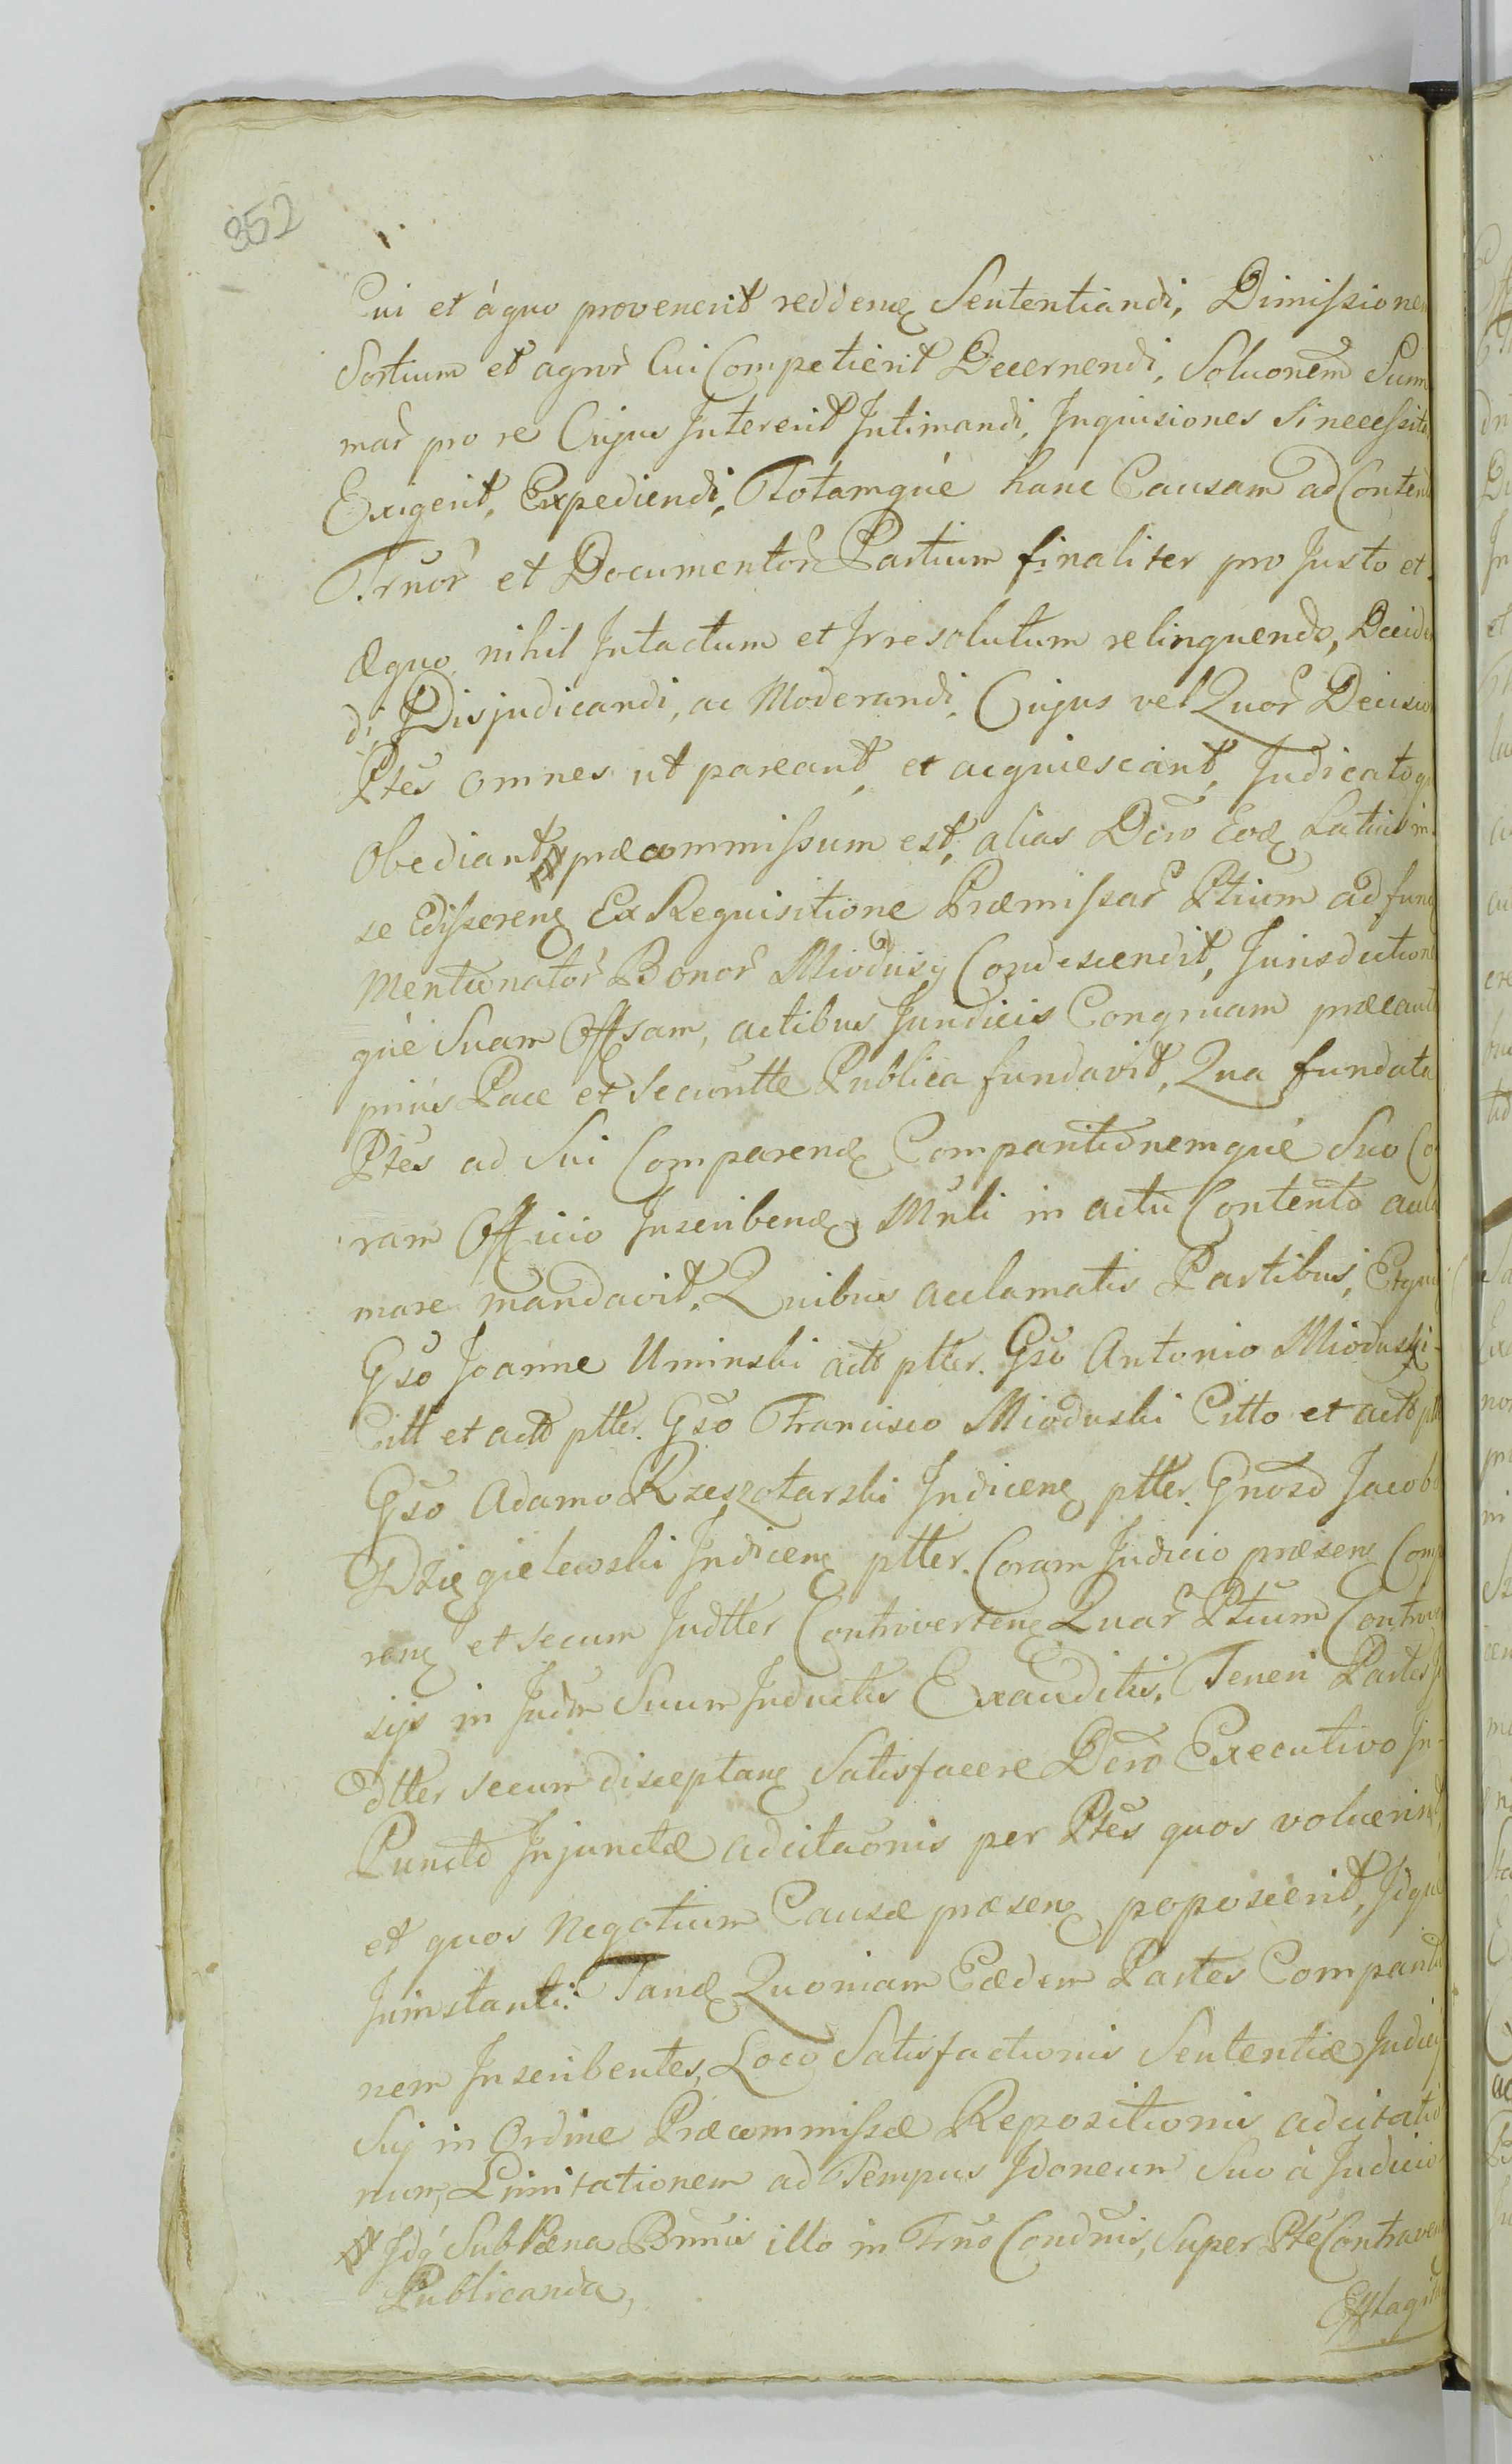 352
Cui et á quo provenerit reddenꝫ Sententiandi, Dimiſsionem
Sortium et agror̃ Cui Competierit Decernendi, Soluõnem Sum
mar̃ pro re Cujus Intererit Intimandi, Inquisiones Si neceſsitas
Exigerit, Expediendi, Totamqúe hanc Causam ad Content
Trũor̃ et Documentor̃ Partium finaliter pro Justo et
Æquo nihil Intactum et Irresolutum relinquendo, Deciden
di, Disjudicandi, ac Moderandi, Cujus vel Quor̃ Decisio
Ptes omnes ut pareant, et acquiescant, Judicatoq
Obediant # præcommiſsum est, alias Dcro Eoꝫ Latius in
se Ediſserenꝫ Ex Requisitione Præmiſsar̃ Ptium ad fund
Mentionator̃ Bonor̃ Miodusy Condescendit, Jurisdiction
qúe Suam Offsam, actibus Juridicis Congruam præcaut
priús Pace et Securitte Publica fundavit, Qua fundata
Ptes ad Sui Comparenꝫ Comparitionemqúe Suo Co
ram Officio Inscribenꝫ Mnli in actu Contento accla
mare mandavit, Quibus acclamatis Partibus, Etqui
Gso Joanne Uminski actô ptter. Gso Antonio Mioduski
Citt et actô ptter. Gso Francisco Mioduski Citto et actô ptt
Gso Adamo Rzeszotarski Indicenꝫ ptter. Gnoso Jacobo
Dzięgielewski Indicenꝫ ptter. Coram Judicio præsenꝫ Compa
renꝫ et secum Judtter Controvertenꝫ Quar̃ Ptium Controver
sijs in Judm Suum Inductis Exauditis, Teneri Partes Ju
dtter secum disceptanꝫ Satisfacere Dcro Executivo In
Puncto Injunctæ adcitaõnis per Ptes quos voluerint,
et quos Negotium Causæ præsenꝫ poposcerit, Idqúe
Juinstanti: Tanꝫ Quoniam Eædem Partes Comparitio
nem Inscribentes, Loco Satisfactionis Sententiæ Judicij
Sui in Ordine Præcommiſsæ Repositionis adcitatio
num, Limitationem ad Tempus Idoneum Suo à Judicio
# Idq́ Sub Pæna Bnnis illo in Trno Condnis, Super Pte Contraven
Publicanda,
Efflagita